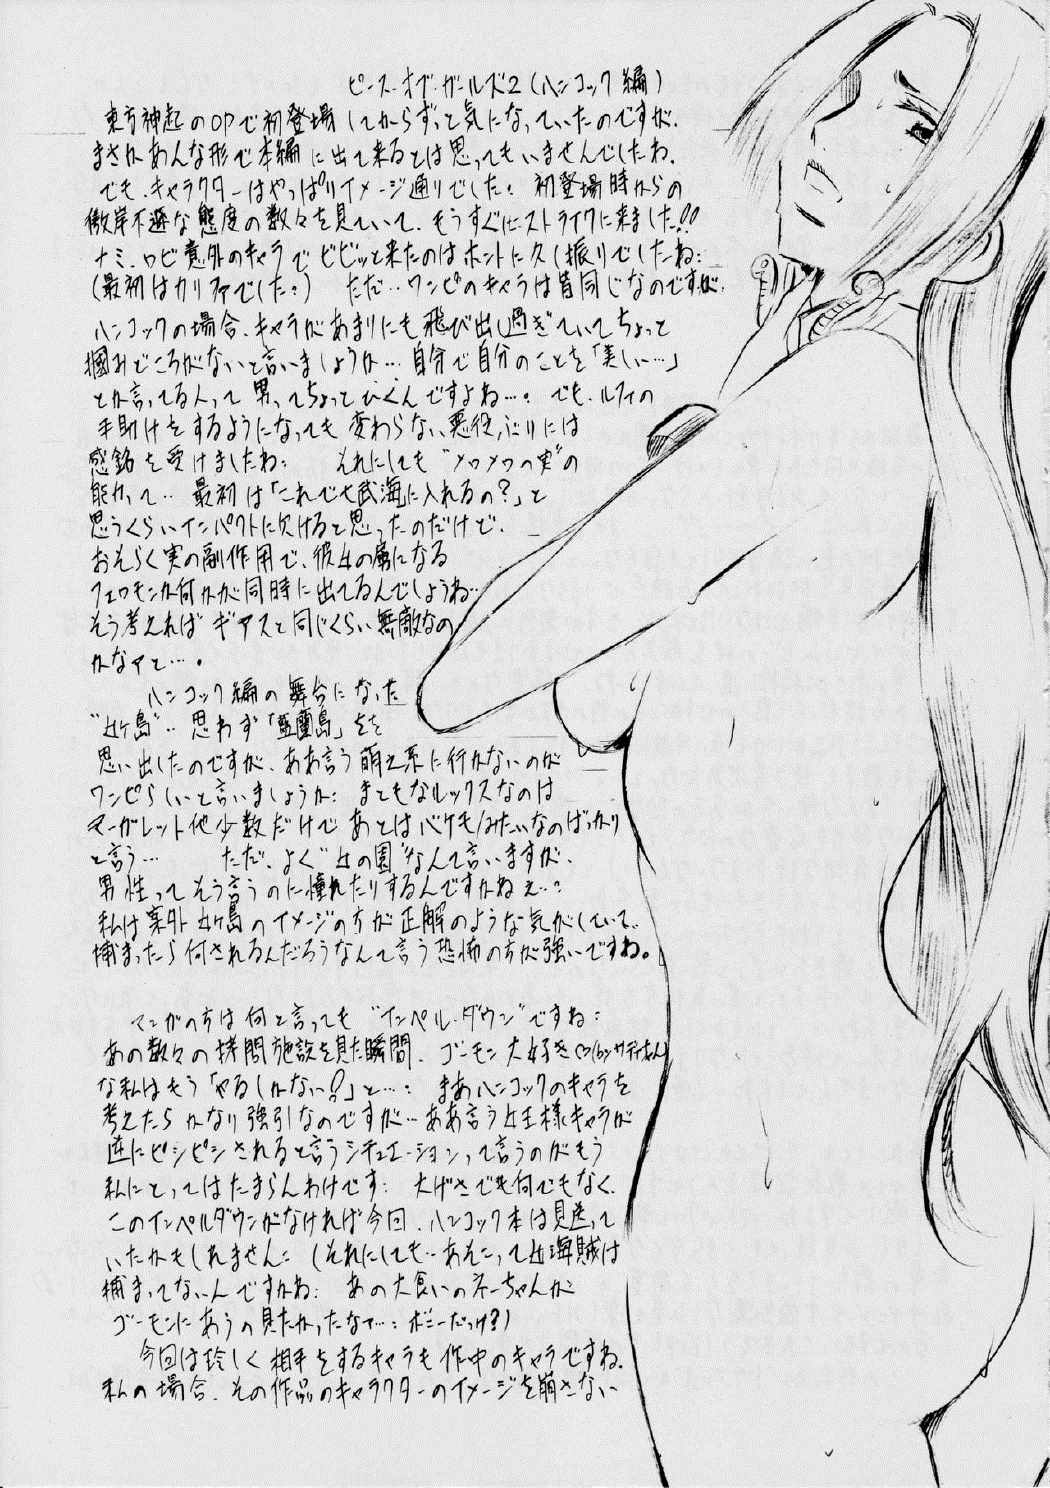 ピース・オブ・ガールズ2(ハンコック編)
東方神起のOPで初登場してからずっと気になっていたのですが、
まさかあんな形で本編に出て来るとは思ってもいませんでしたね、
でも、キャラクターはやっぱりイメージ通りでした。初登場時からの
傲岸不遜な態度の数々を見ていて、もうすぐにストライクに来ました!!
ナミ、ロビ意外のキャラでビビッと来たのはホントに久し振りでしたね:
(最初はカリファでした:) ただ…ワンピのキャラは皆同じなのですが、
ハンコックの場合、キャラがあまりにも飛び出し過ぎていてちょっと
掴みどころがないと言いましょうか…自分で自分のことを「美しい…」
とか言ってる人って男ってちょっとひくんですよね…。でも、ルフィの
手助けをするようになっても変わらない悪役ぶりには
感銘を受けましたね: それにしても"メロメロの実"の
能力って…最初は「これで七武海に入れるの?」と
思うくらいインパクトに欠けると思ったのだけど、
おそらく実の副作用で、彼女の虜になる
フェロモンか何かが同時に出てるんでしょうね…
そう考えればギアスと同じくらい無敵なの
かなァと…。
ハンコック編の舞台になった
"女ヶ島"…思わず「藍蘭島」を
思い出したのですが、ああ言う萌え系に行かないのが
ワンピらしいと言いましょうか: まともなルックスなのは
マーガレット他少数だけであとはバケモノみたいなのばっかり
と言う… ただ、よく"女の園"なんて言いますが、
男性ってそう言うのに憧れたりするんですかねぇ…?
私は案外女ヶ島のイメージの方が正解のような気がしていて、
捕まったら何されるんだろうなんて言う恐怖の方が強いですね。
マンガの方は何と言っても"インペル・ダウン"ですね:
あの数々の拷問施設を見た瞬間、ゴーモン大好き♡(byサディちゃん)
な私はもう「やるしかない!?」と…: まあハンコックのキャラを
考えたらかなり強引なのですが…ああ言う女王様キャラが
逆にビシビシされると言うシチュエーションって言うのがもう
私にとってはたまらんわけです: 大げさでも何でもなく、
このインペルダウンがなければ今回、ハンコック本は見送って
いたかもしれません: (それにしても…あそこって女海賊は
捕まってないんですかね: あの大食いのネーちゃんが
ゴーモンにあうの見たかったなァ…: ボニーだっけ?)
今回は珍しく相手をするキャラも作中のキャラですね、
私の場合、その作品のキャラクターのイメージを崩さない